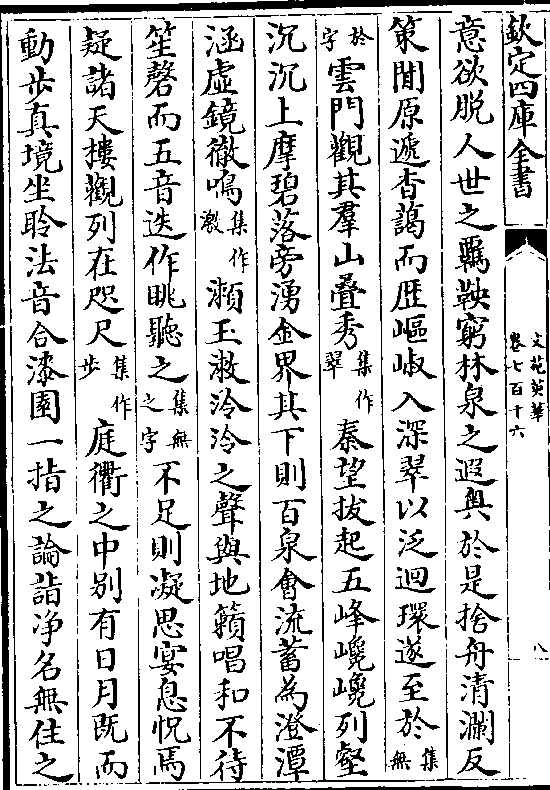 欽定四庫全書
文苑英華
卷七百十六
八
意欲脱人世之羈鞅窮林泉之遐與於是捨舟清瀾反
策閒原遞杳藹而歴嶇岰入深翠以泛迴環遂至於集無
於字雲門觀其羣山疊秀集作翠秦望拔起五峰巉巉列壑
沉沉上摩碧落旁湧金界其下則百泉會流蓄為澄潭
涵虚鏡徹鳴集作激瀨玉漱泠泠之聲與地籟唱和不待
笙磬而五音迭作眺聽之集無之字不足則凝思宴息怳焉
疑諸天樓觀列在咫尺集作步庭衢之中別有日月既而
動步真境坐聆法音合漆園一指之論詣浄名無住之